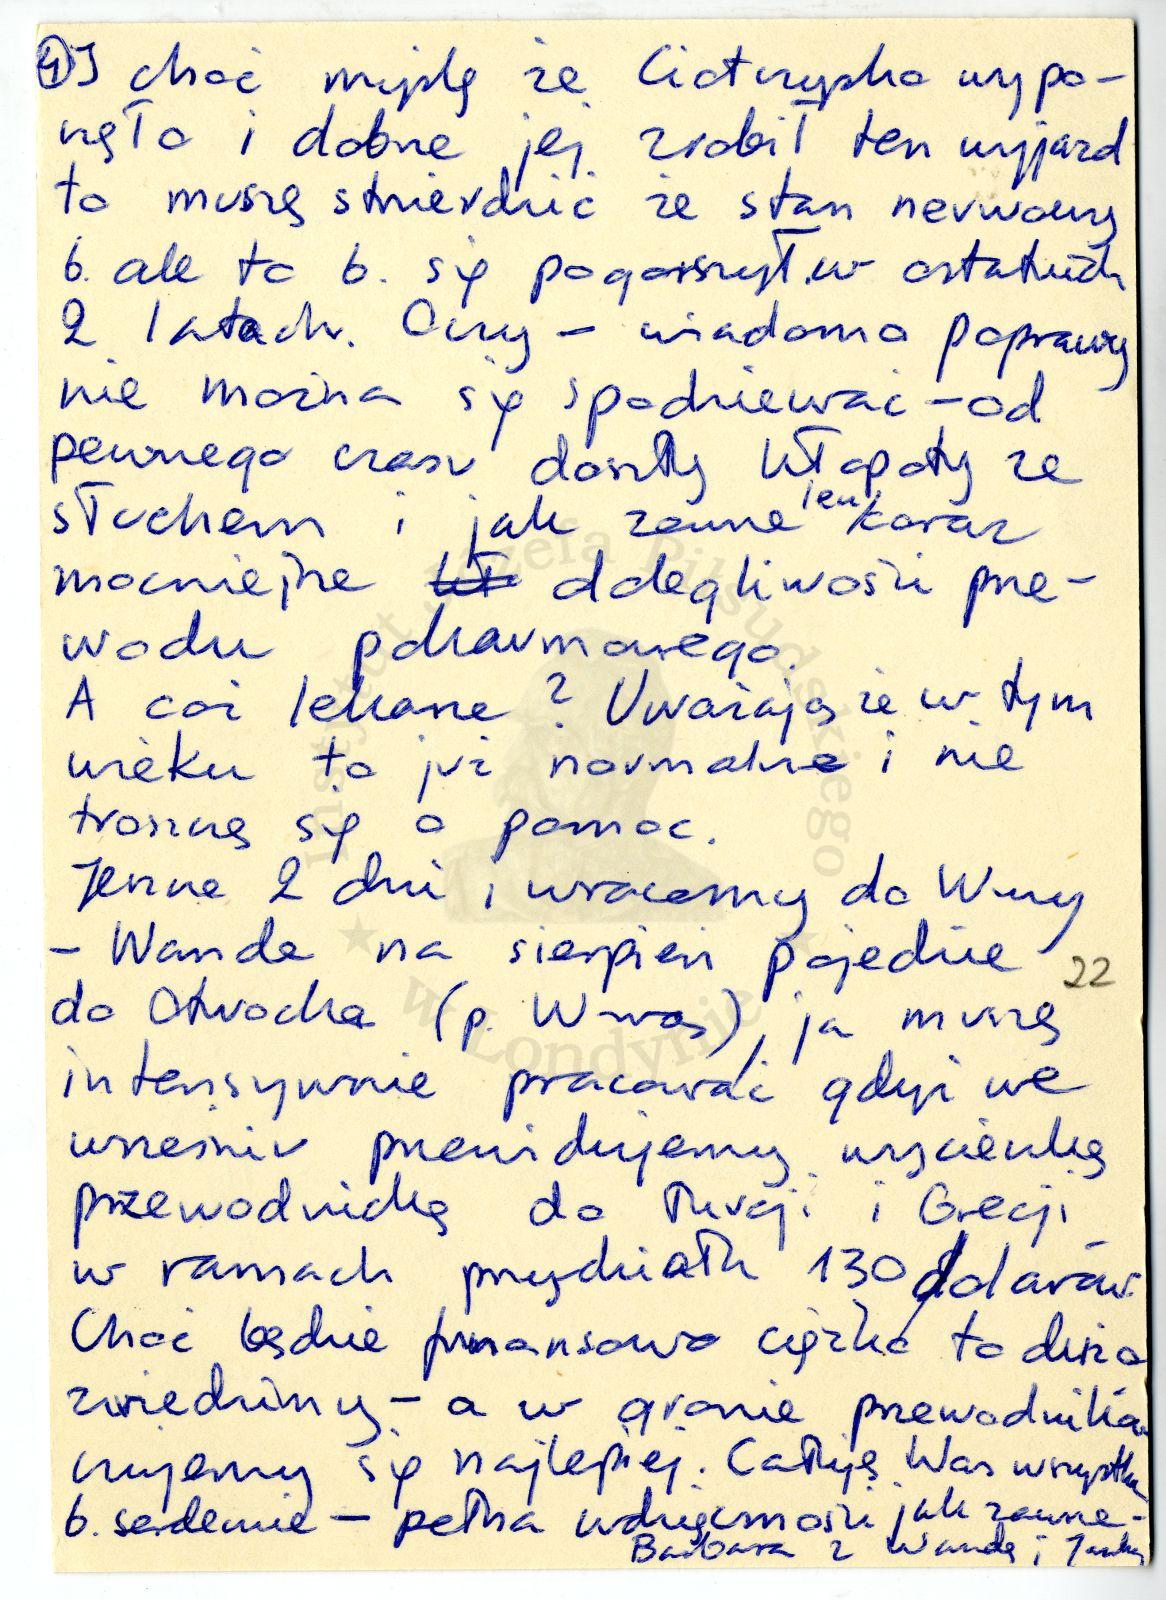 4) I choć myślę że Ciotczyska wypo-
częła i dobrze jej zrobił ten wyjazd
to muszę stwierdzić że stan nerwowy
b. ale to b. się pogorszył w ostatnich
2 latach. Oczy – wiadomo poprawy
nie można się spodziewać – od
pewnego czasu doszły kłopoty ze
słuchem i jak zawsze ten coraz
mocniejsze dolegliwości prze-
wodu pokarmowego.
A cóż lekarze? Uważają że w tym
wieku to już normalne i nie
troszczą się o pomoc.
Jeszcze 2 dni i wracamy do Wwy
– Wanda na sierpień pojedzie
22
do Otwocka (p. Wwą), ja muszę
intensywnie pracować gdyż we
wrześniu przewidujemy wycieczkę
przewodnicką do Turcji i Grecji
w ramach przydziału 130 dolarów
Choć będzie finansowo ciężko to dużo
zwiedzimy – a w gronie przewodników
czujemy się najlepiej. Całuję Was wszystkich
b. serdecznie – pełna wdzięczności jak zawsze –
Barbara z Wandą i
Instytut Józefa Piłsudskiego
w Londynie